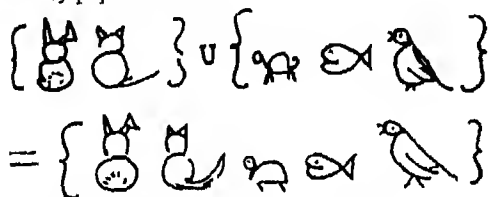 { } ∪ { }
= { }